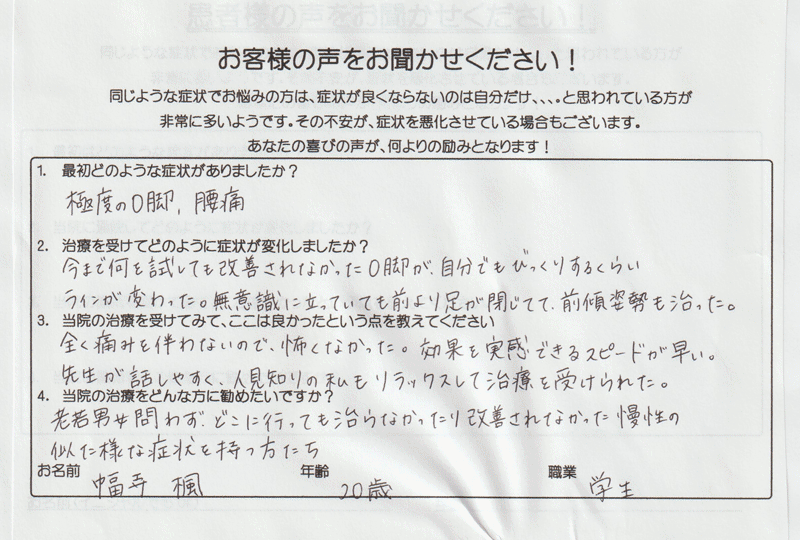 お客様の声をお聞かせください！
同じような症状でお悩みの方は、症状が良くならないのは自分だけ、、、。と思われている方が
非常に多いようです。その不安が、症状を悪化させている場合もございます。
あなたの喜びの声が、何よりの励みとなります！
1. 最初どのような症状がありましたか？
極度のO脚, 腰痛
2. 治療を受けてどのように症状が変化しましたか？
今まで何を試しても改善されなかったO脚が、自分でもびっくりするくらい
ラインが変わった。無意識に立っていても前より足が閉じてて、前傾姿勢も治った。
3. 当院の治療を受けてみて、ここは良かったという点を教えてください
全く痛みを伴わないので、怖くなかった。効果を実感できるスピードが早い。
先生が話しやすく、人見知りの私もリラックスして治療を受けられた。
4. 当院の治療をどんな方に勧めたいですか？
老若男女問わず、どこに行っても治らなかったり改善されなかった慢性の
似た様な症状を持つ方たち
お名前 年齢 職業
幅寺 楓 20歳 学生